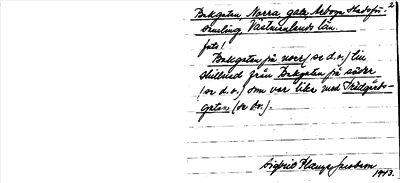 Bakgatan, Norra gata, Arboga Stadsför- 2
samling, Västmanlands län.
foto!
Bakgatan på norr (se d.o.) till
skillnad från Bakgatan på söder
(se d.o.) som var lika med Trädgårds-
gatan (se d.o.).
Sigfrid Hange Jacobson
1943.